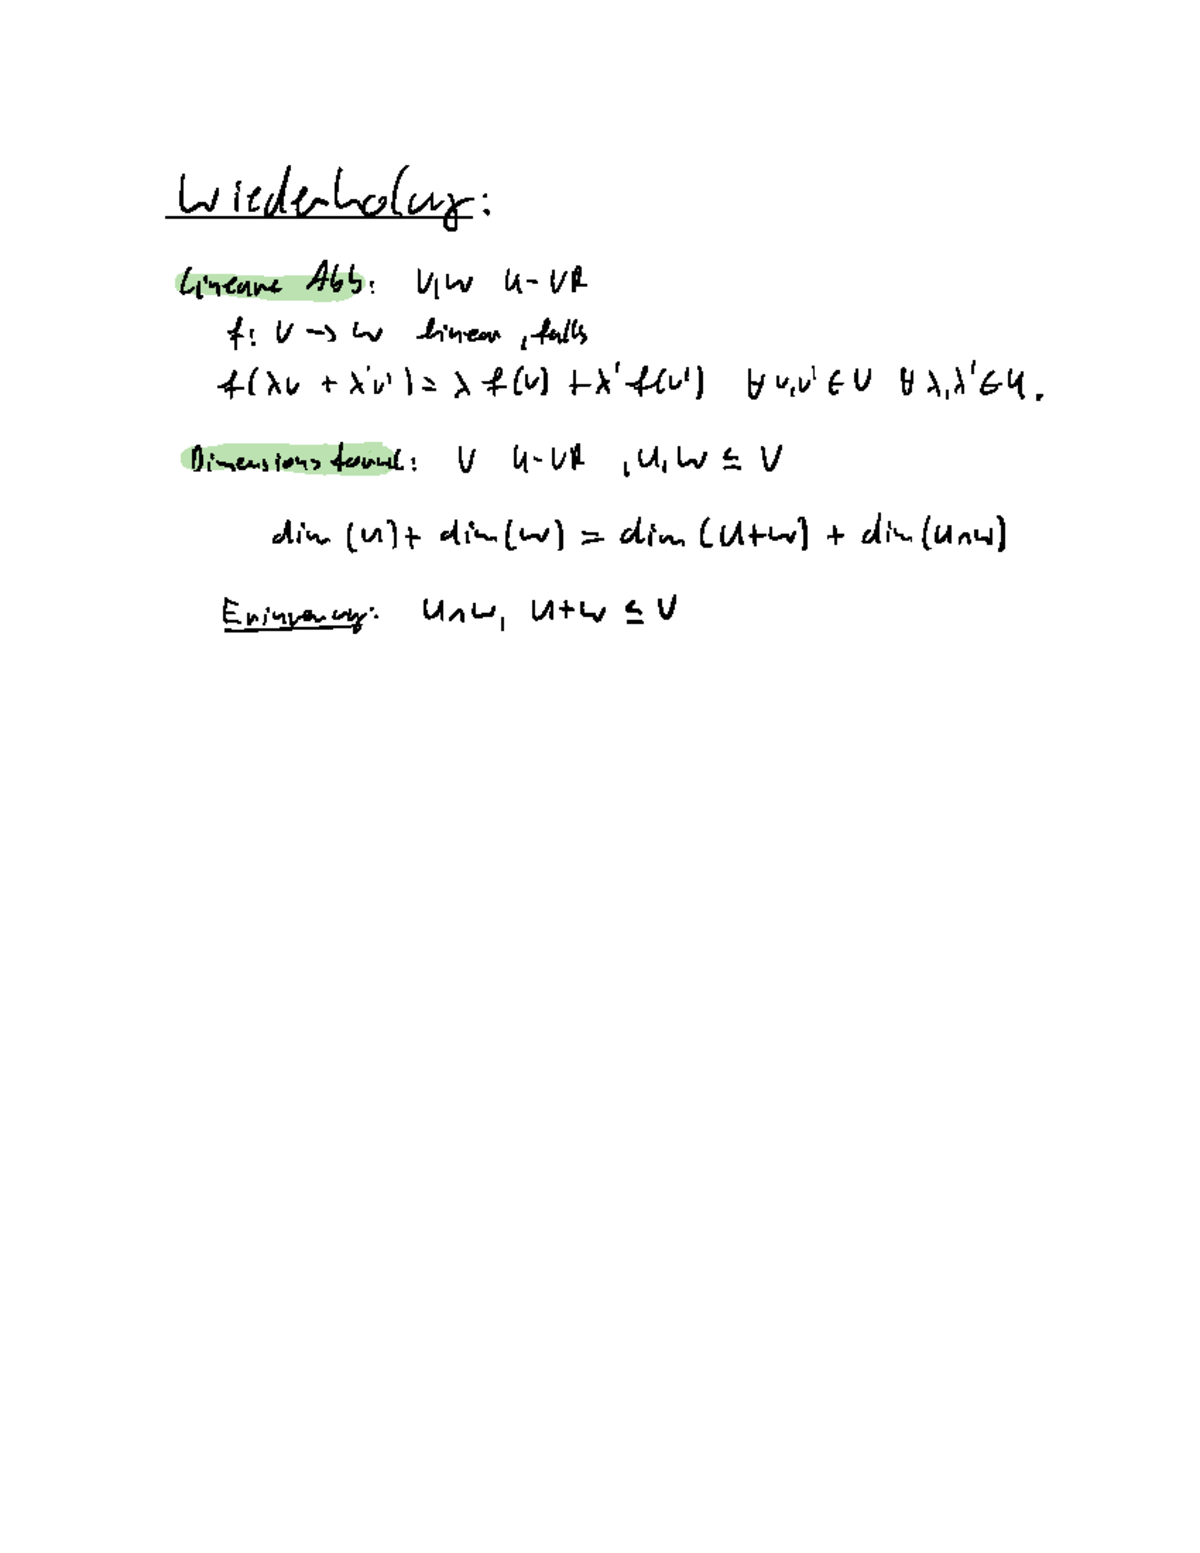 Wiederholung:
Lineare Abb: V, W K-VR
f: V → W linear, falls
f(λv + λ'v') = λ f(v) + λ' f(v') ∀ v,v' ∈ V ∀ λ,λ' ∈ K.
Dimensionsformel: V K-VR, U, W ≤ V
dim (U) + dim (W) = dim (U+W) + dim (U∩W)
Erinnerung: U∩W, U+W ≤ V